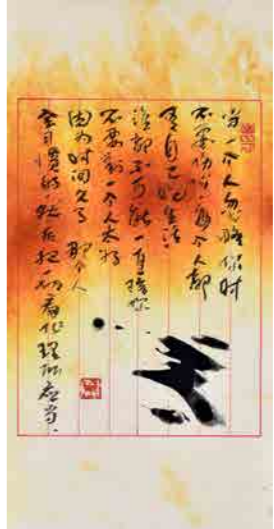 当一个人忽略你时
不要伤心每个人都
有自己的生活
谁都不可能一直陪你
不要对一个人太好
因为时间久了 那个人
会习惯的 然后把一切看作理所应当